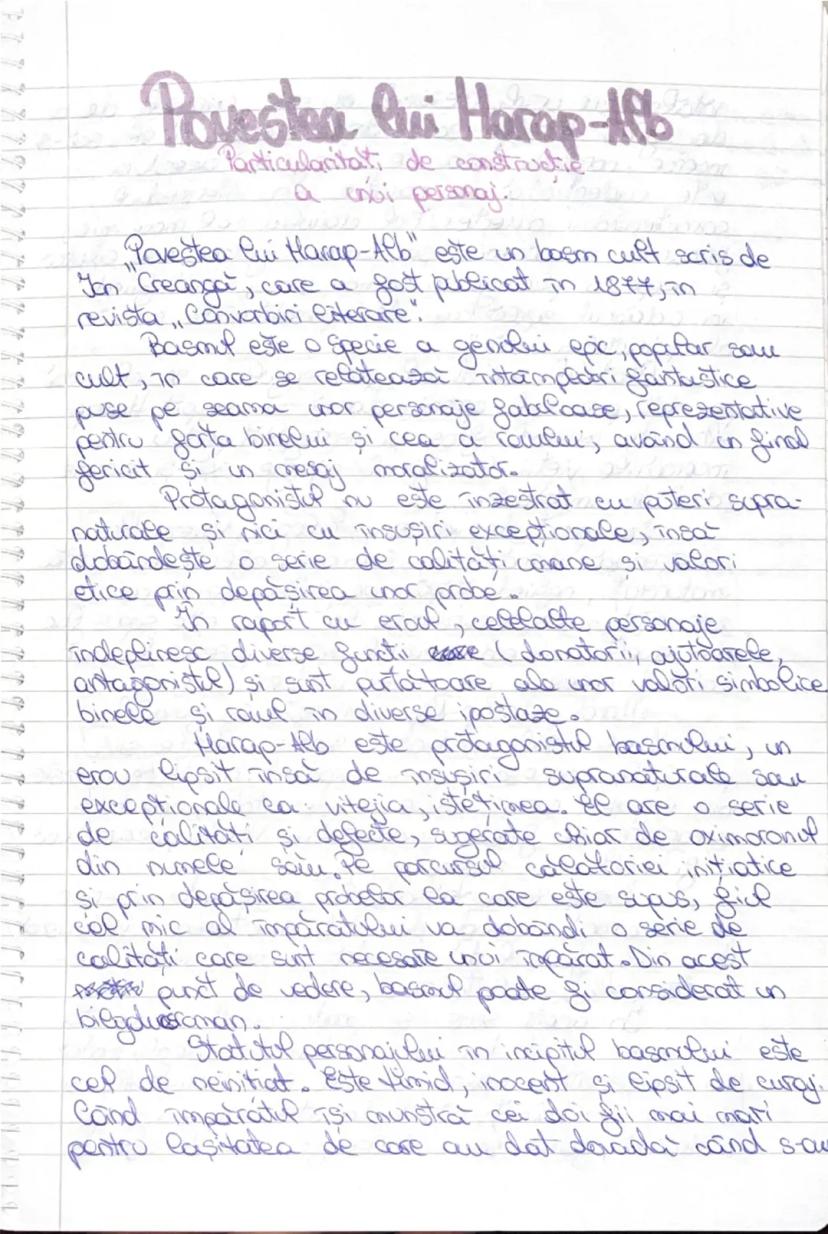 Povestea lui Harap-Alb
Particularitati de constructie
a unui personaj.
„Povestea lui Harap-Alb" este un basm cult scris de
Ion Creangă, care a fost publicat în 1877, în
revista „Convorbiri literare".
Basmul este o specie a genului epic, popular sau
cult, în care se relatează întâmplări fantastice
puse pe seama unor personaje fabuloase, reprezentative
pentru forța binelui și cea a răului, având un final
fericit și un mesaj moralizator.
Protagonistul nu este înzestrat cu puteri supra-
naturale și nici cu însușiri excepționale, însă
dobândește o serie de calități umane si valori
etice prin depășirea unor probe.
În raport cu eroul, celelalte personaje
îndeplinesc diverse functii (donatorii, ajutoarele,
antagonistul) și sunt purtătoare ale unor valori simbolice
binele și răul în diverse ipostaze.
Harap-Alb este protagonistul basmului, un
erou lipsit însă de însușiri supranaturale sau
excepționale ca: vitejia, istețimea. El are o serie
de calități și defecte, sugerate chiar de oximoronul
din numele său. Pe parcursul călătoriei inițiatice
și prin depășirea probelor la care este supus, fiul
cel mic al împăratului va dobândi o serie de
calități care sunt necesare unui împărat. Din acest
punct de vedere, basmul poate fi considerat un
bildungsroman.
Statutul personajului în incipitul basmului este
cel de neinitiat. Este timid, inocent și lipsit de curaj.
Când împăratul își mustră cei doi fii mai mari
pentru lașitatea de care au dat dovadă când s-au